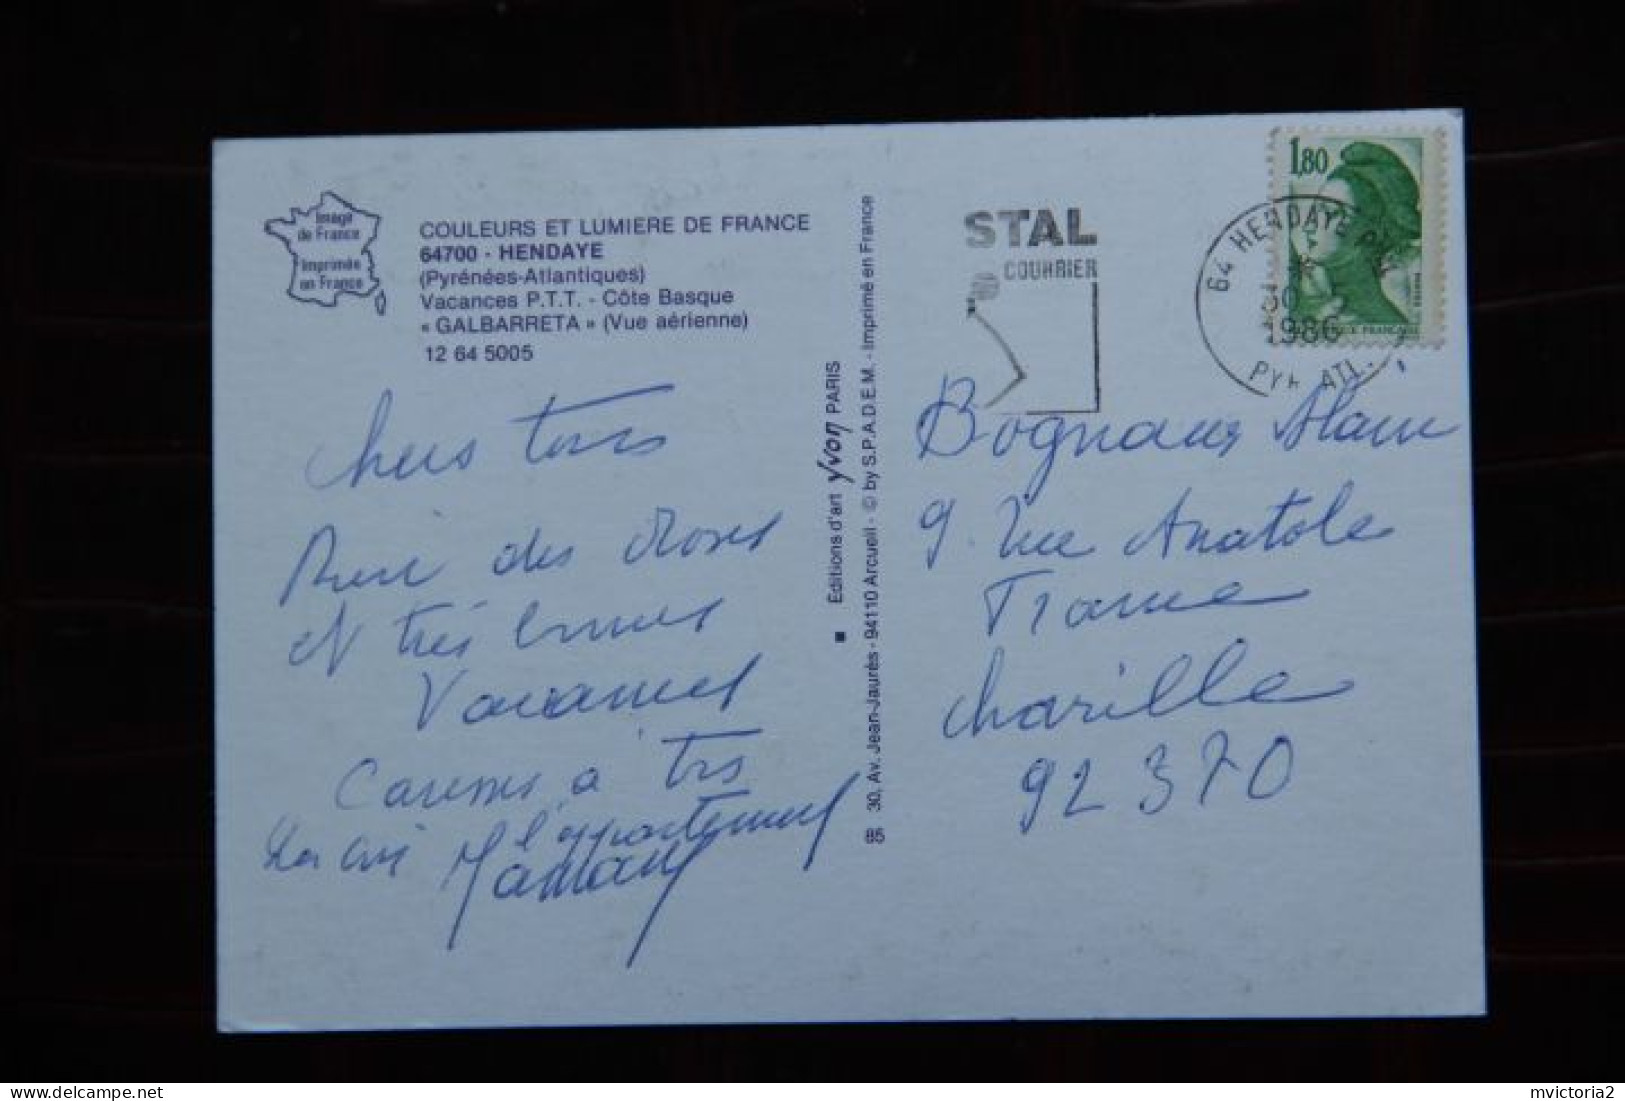 Image
de France
Imprimée
en France
COULEURS ET LUMIERE DE FRANCE
64700 - HENDAYE
(Pyrénées-Atlantiques)
Vacances P.T.T. - Côte Basque
« GALBARRETA » (Vue aérienne)
12 64 5005
Chers tous
des
et très bonnes
Vacances
Caresses à tos
l'appartement
Maman
Editions d'art yvon PARIS
85 30, Av. Jean-Jaurès - 94110 Arcueil - © by S.P.A.D.E.M. - Imprimé en France
STAL
COURRIER
64 HENDAYE
1986
PYR. ATL.
1,80
Alain
9. rue Anatole
France
chaville
92370
mvictoria2